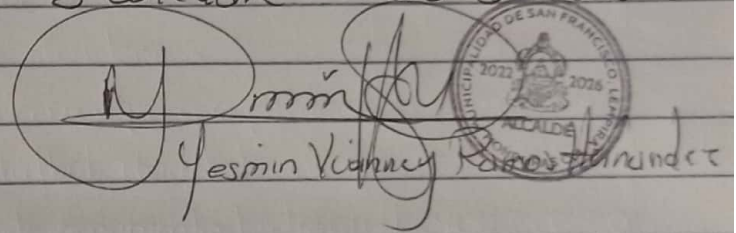 Yesmin Vianney Ramos Hernandez
MUNICIPALIDAD DE SAN FRANCISCO, LEMPIRA
2022 2026
ALCALDE